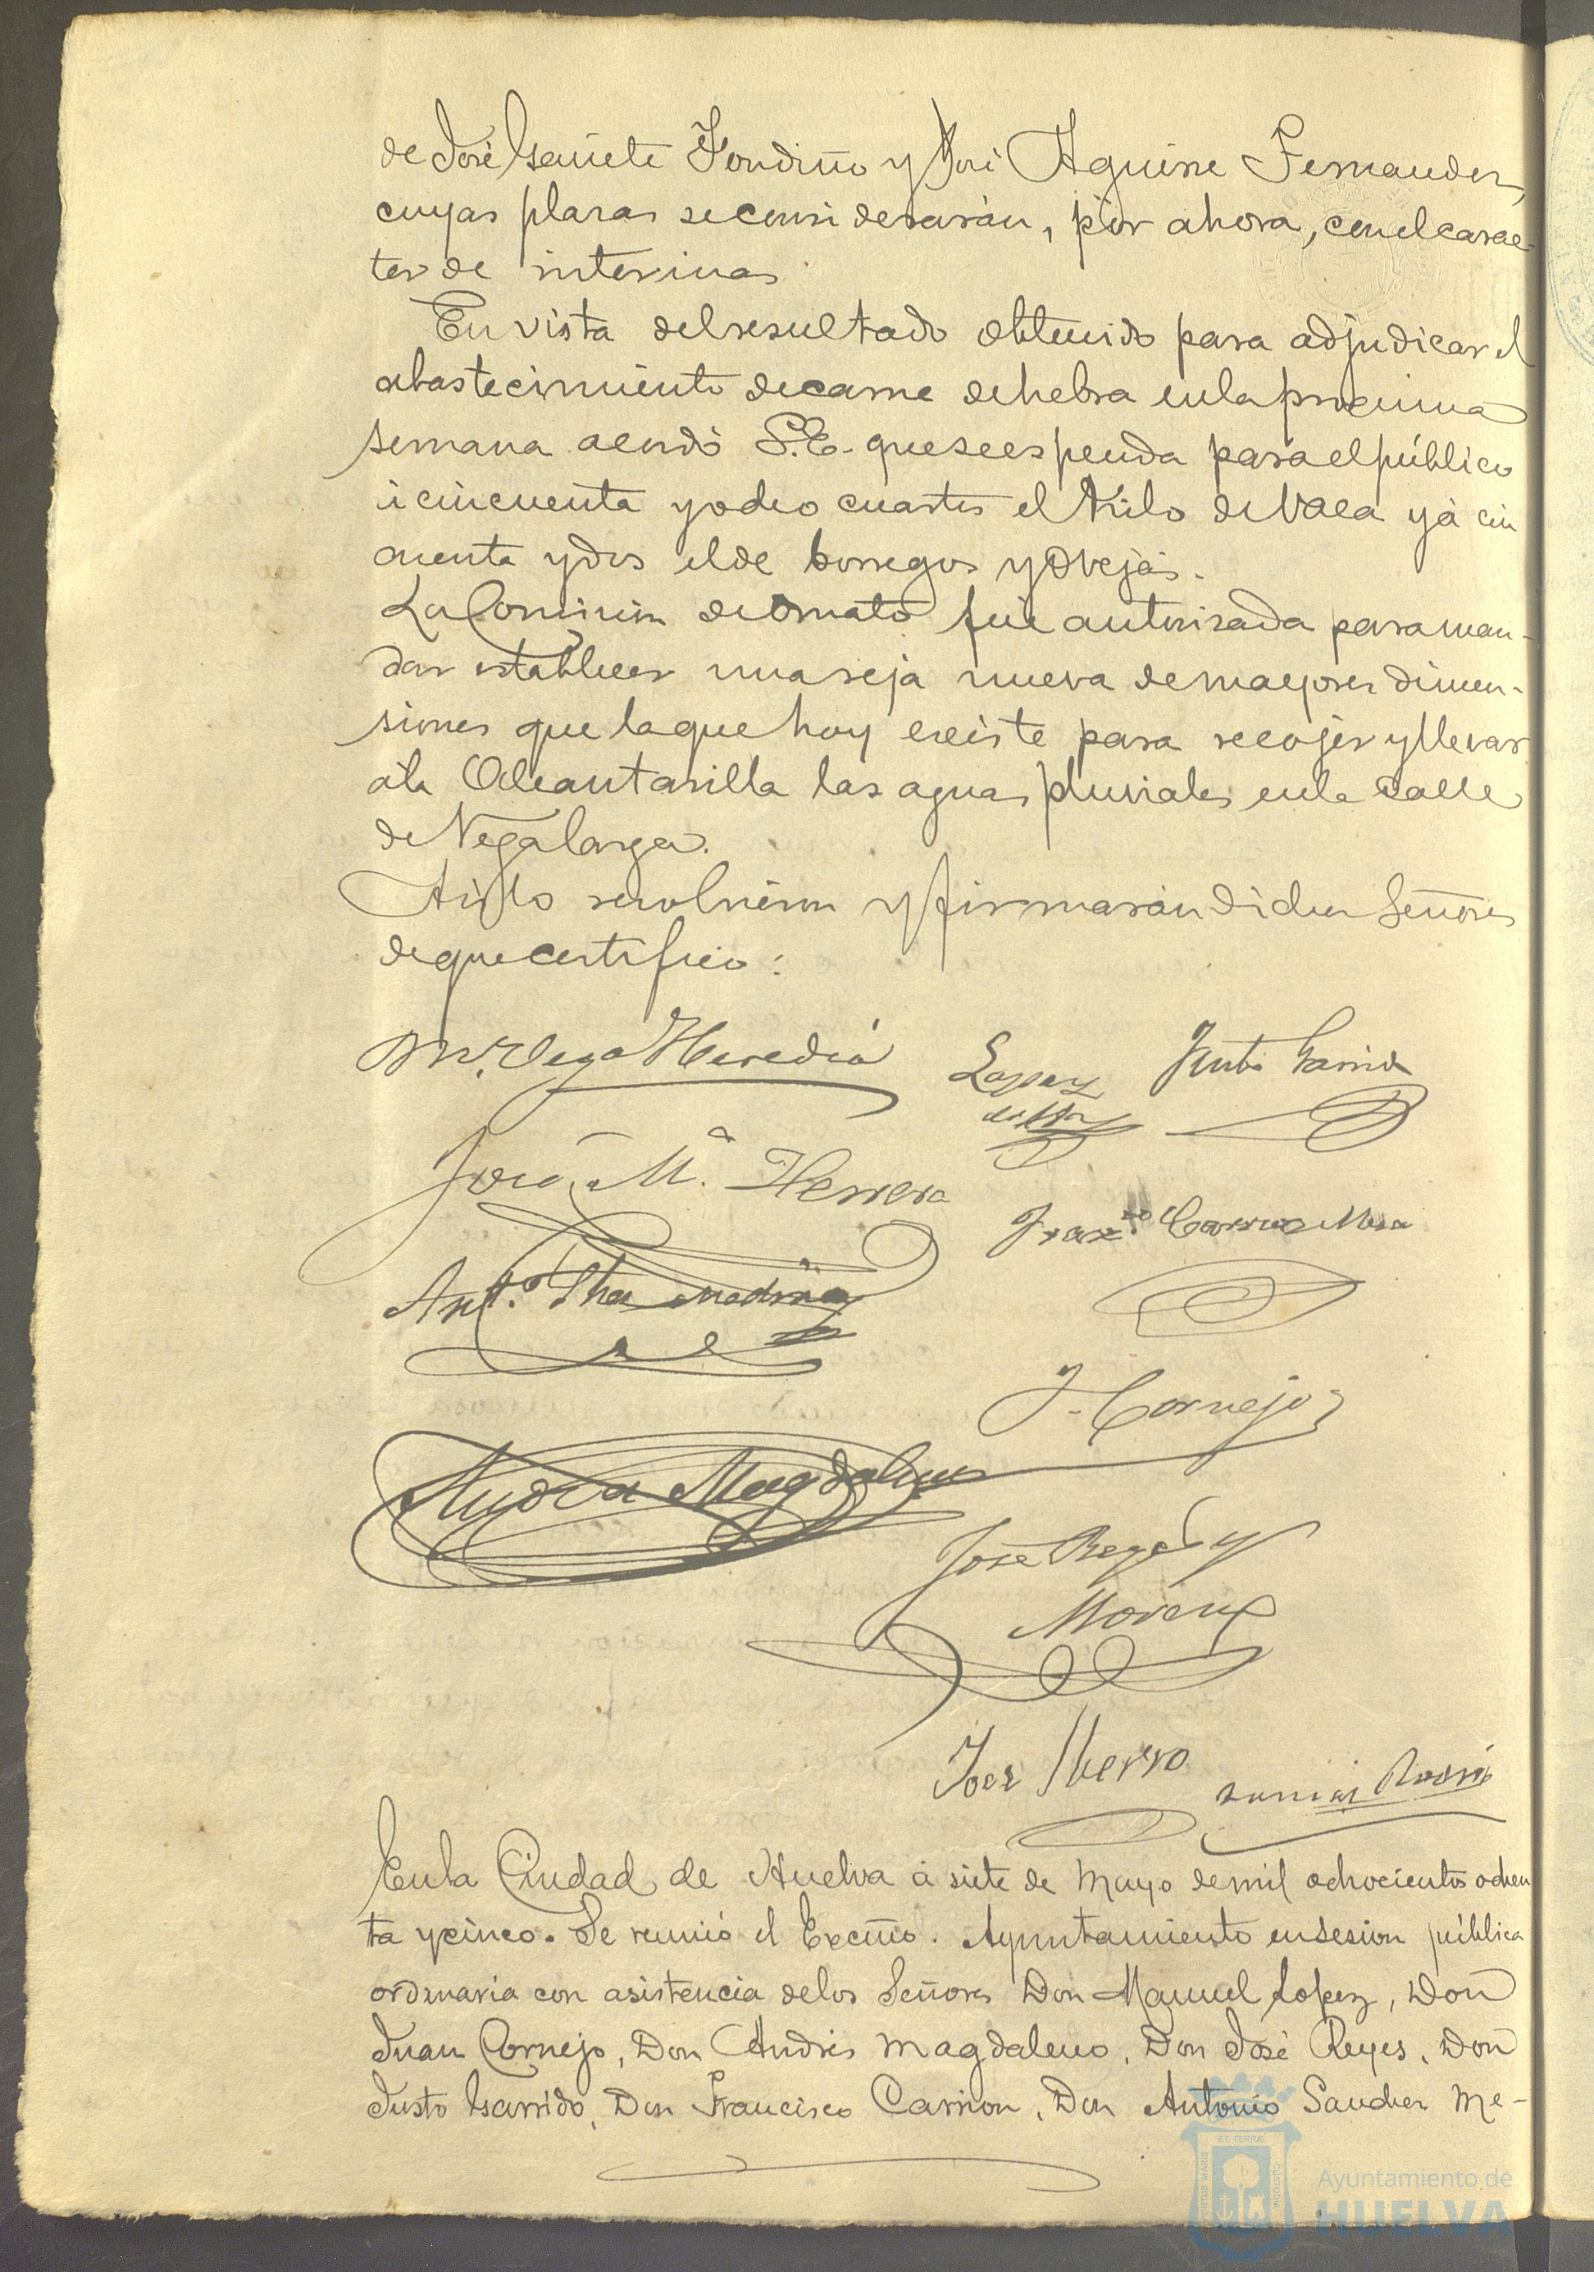 de José Gañete Fondiño y José Aguirre Fernandez,
cuyas plazas se considerarán, por ahora, con el carac-
ter de interinas
En vista del resultado obtenido para adjudicar el
abastecimiento de carne de hebra en la procsima
semana acordó S.E. que se espenda para el público
á cincuenta y ocho cuartos el Kilo de Vaca y á cin
cuenta y dos el de borregos y Ovejas.
La Comision de Ornato fué autorizada para man-
dar establecer una reja nueva de mayores dimen-
siones que la que hoy ecsiste para recojer y llevar
á la Alcantarilla las aguas pluviales en la calle
de Vegalarga.
Asi lo resolvieron y firmarán dichos Señores
de que certifico:
M. Vega Heredia
Lopez
Justo Garrido
José M.ª Herrera
Franco Carrion Mesa
Ant.º Shez Medina
J. Cornejo
Andres Magdaleno
José Reyes y
Moreno
José Hierro
En la Ciudad de Huelva á siete de Mayo de mil ochocientos ochen
ta y cinco. Se reunió el Excmo. Ayuntamiento en sesion pública
ordinaria con asistencia de los Señores Don Manuel Lopez, Don
Juan Cornejo, Don Andrés Magdaleno, Don José Reyes, Don
Justo Garrido, Don Francisco Carrion, Don Antonio Sanchez Me-
Ayuntamiento de
HUELVA